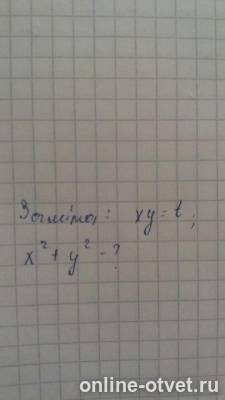 Заміна: xy = t;
x² + y² - ?
online-otvet.ru